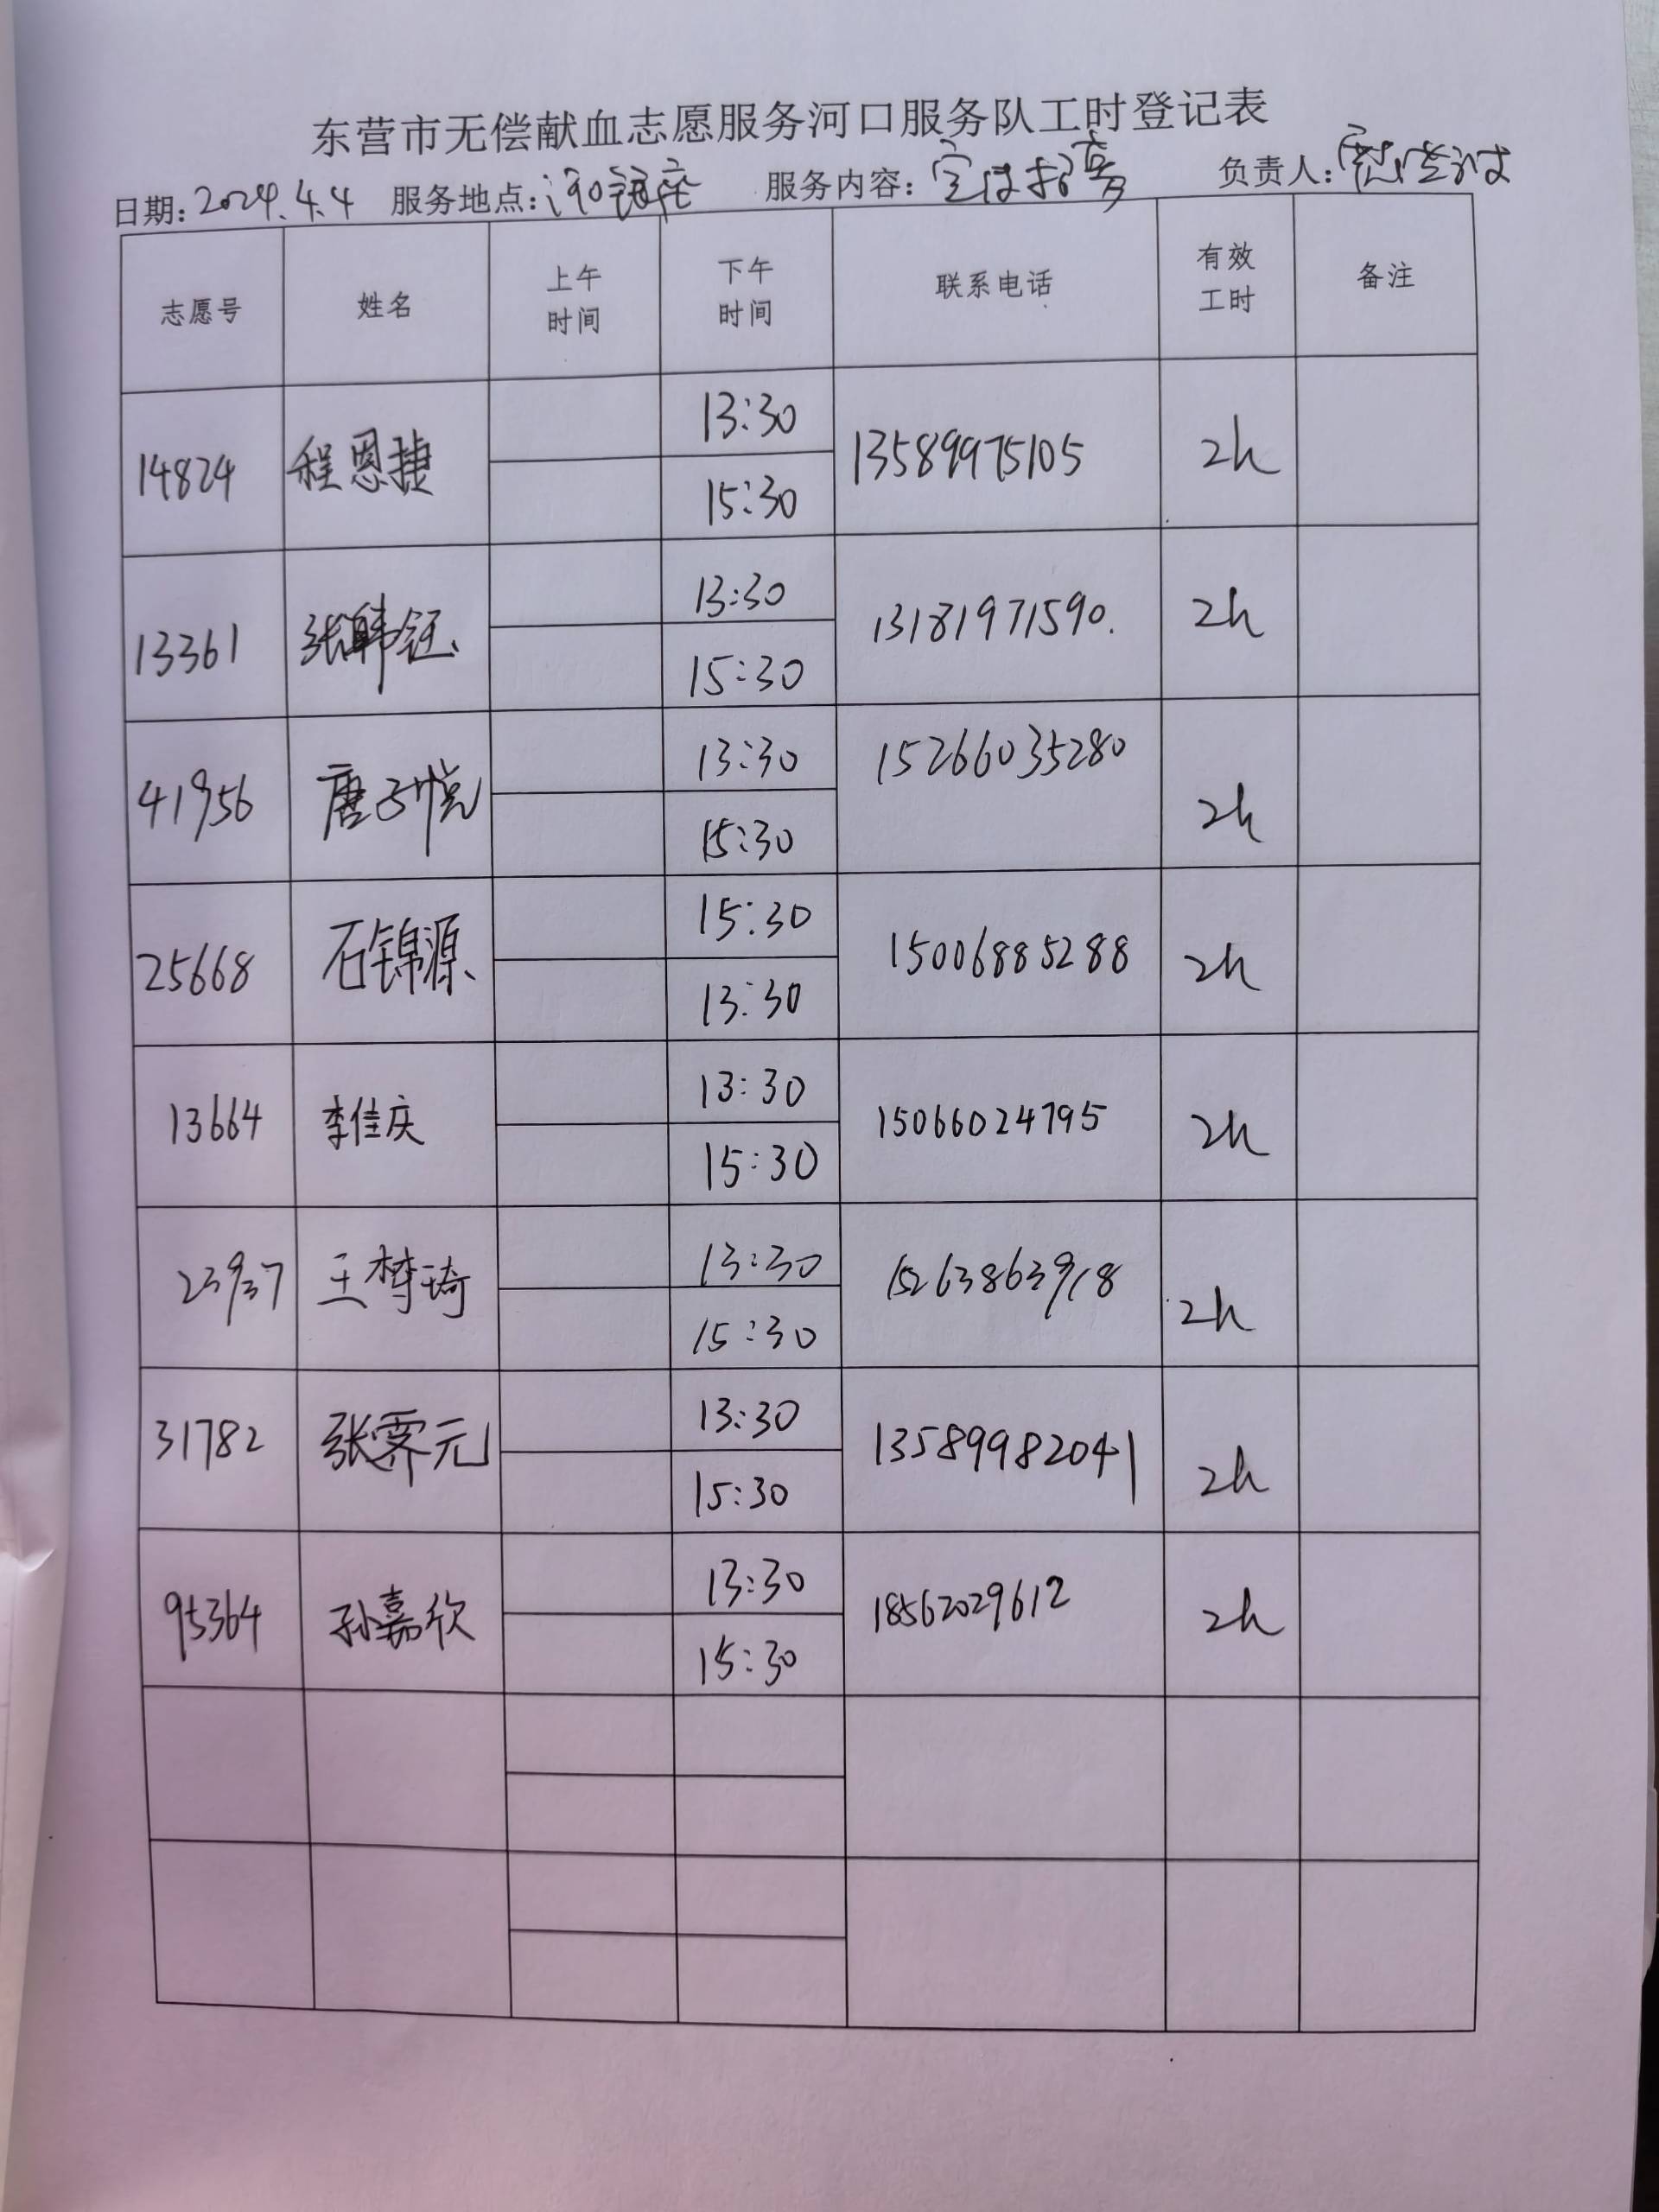 东营市无偿献血志愿服务河口服务队工时登记表
日期:2024.4.4 服务地点: 服务内容:宣传招募 负责人:
志愿号 姓名 上午时间 下午时间 联系电话 有效工时 备注
14824 程恩捷 13:30 15:30 13589975105 2h
13361 张韩钰 13:30 15:30 13181971590. 2h
41956 唐子悦 13:30 15:30 15266035280 2h
25668 石锦源 15:30 13:30 15006885288 2h
13664 李佳庆 13:30 15:30 15066024795 2h
23937 王梦琦 13:30 15:30 15263863918 2h
31782 张霁元 13:30 15:30 13589982041 2h
95364 孙嘉欣 13:30 15:30 18562029612 2h